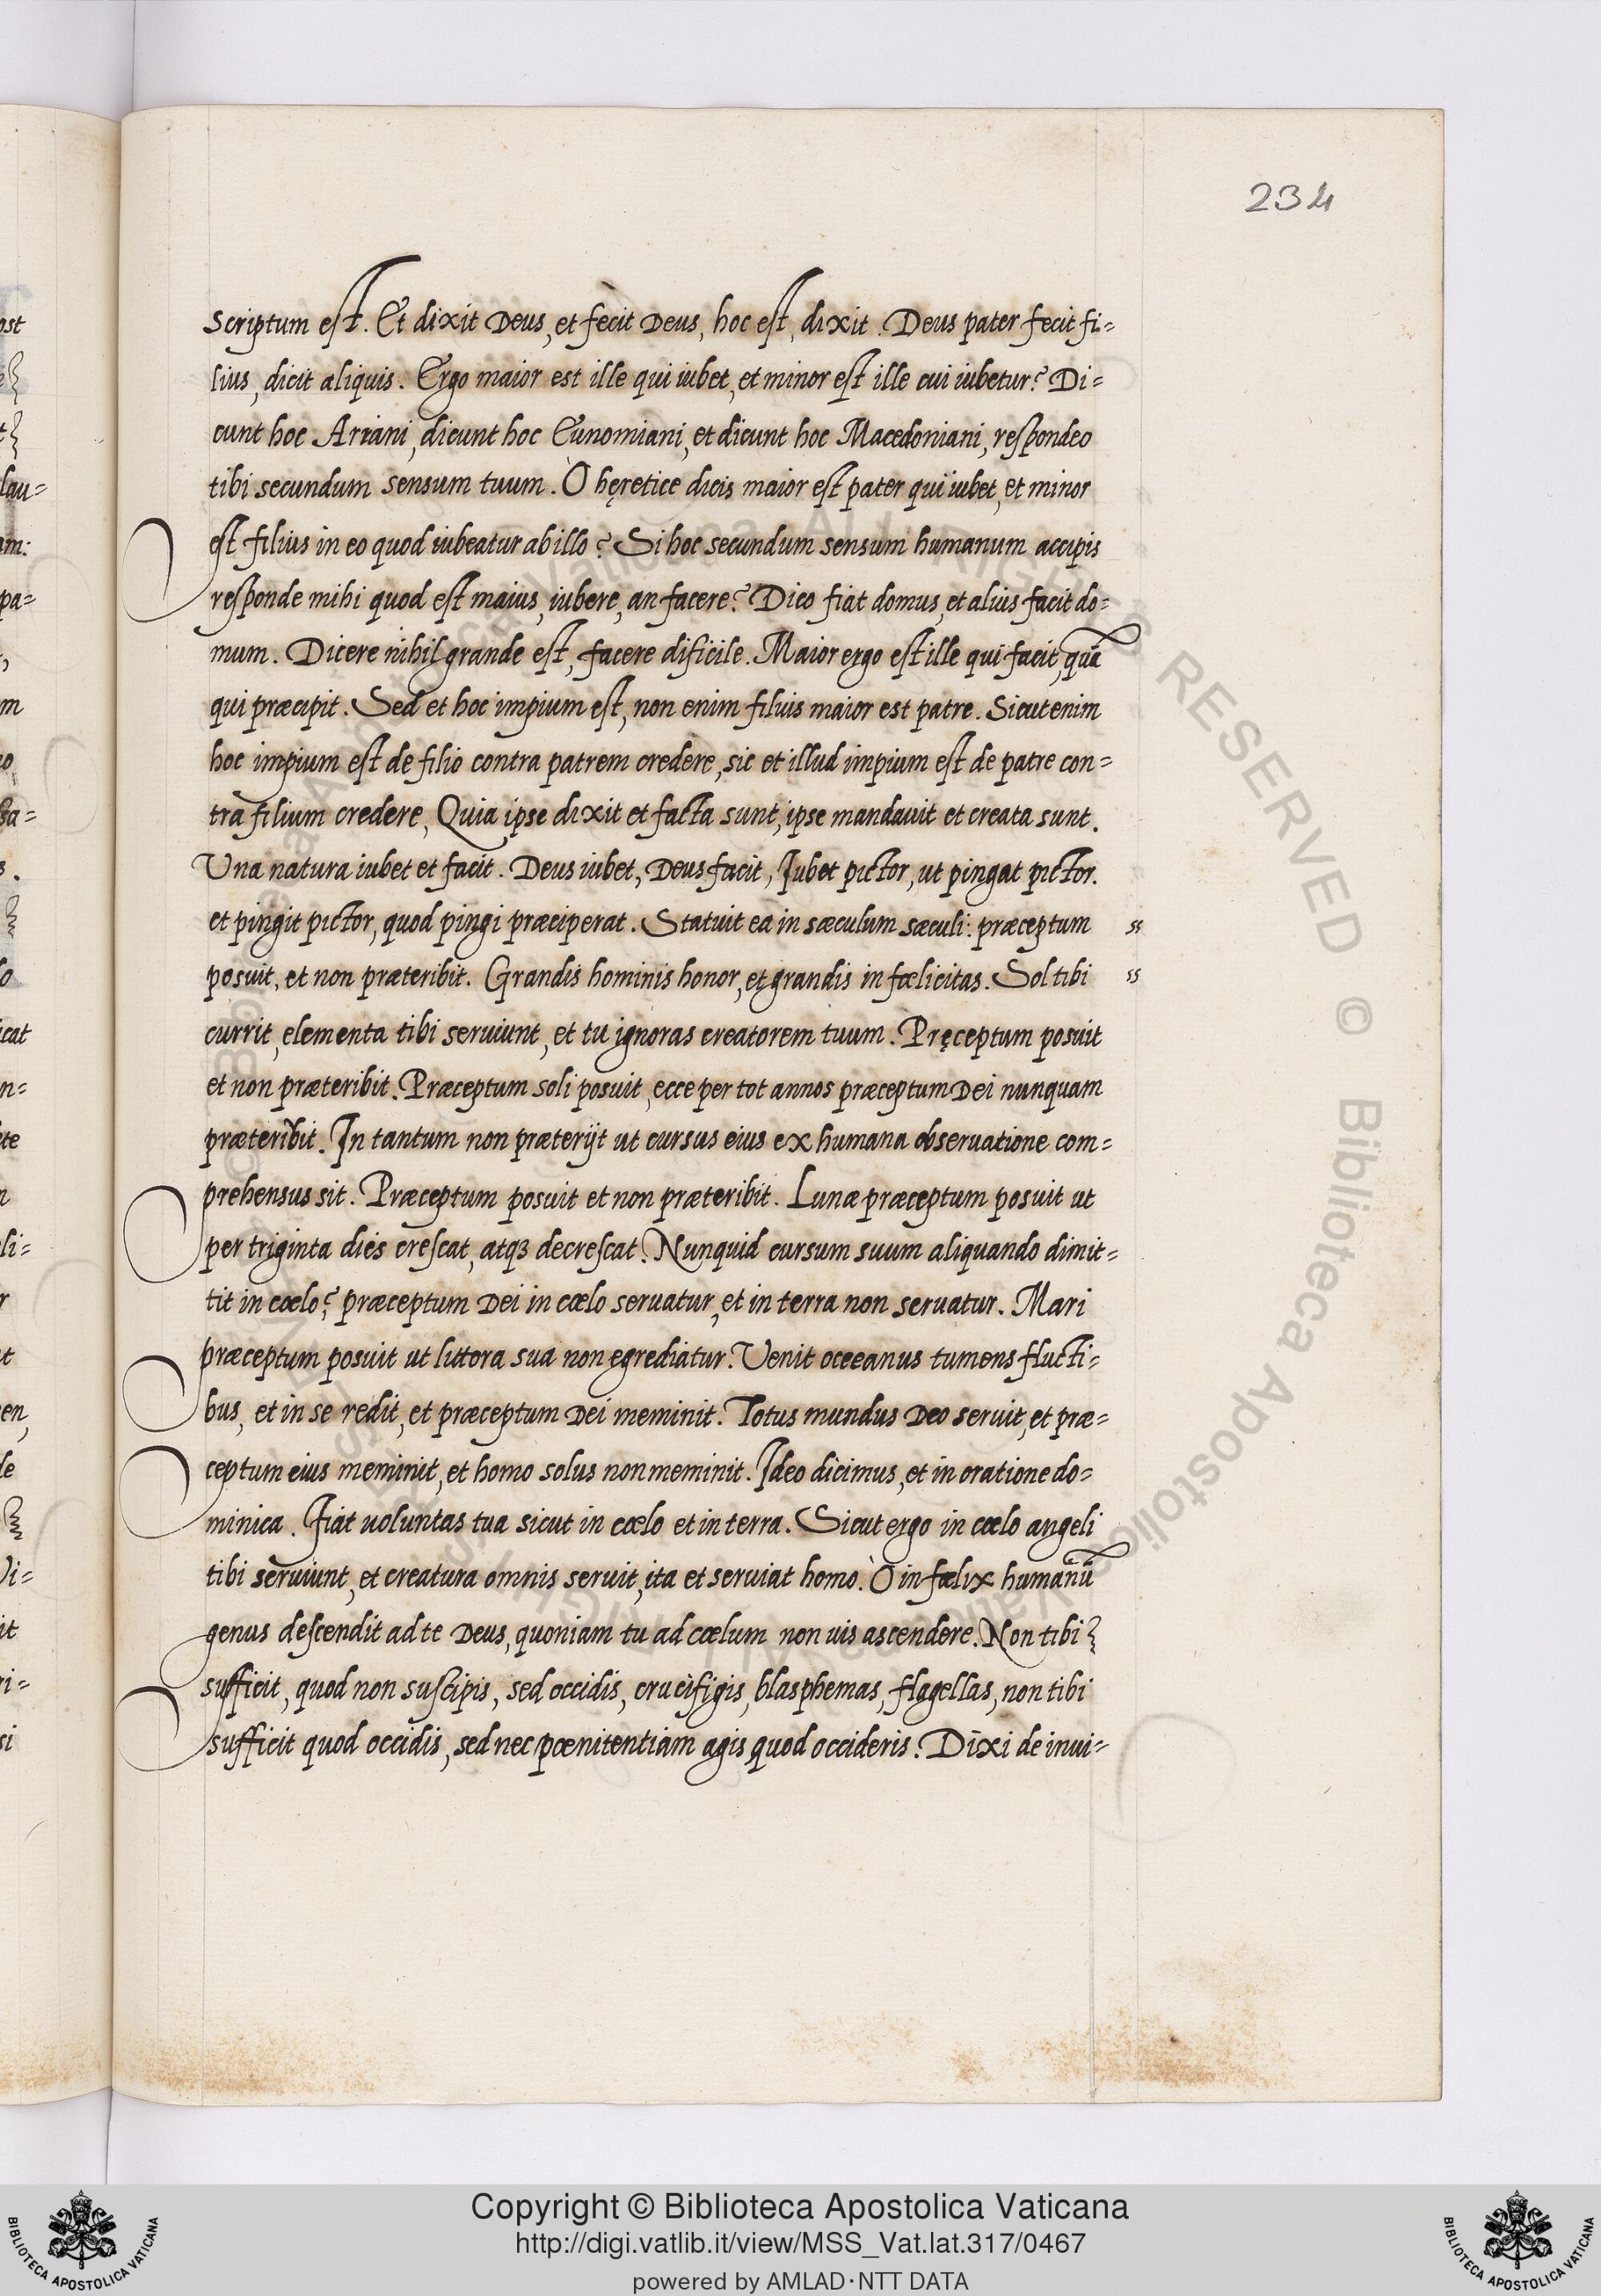 234
Scriptum est. Et dixit Deus, et fecit Deus, hoc est, dixit. Deus pater fecit fi=
lius, dicit aliquis. Ergo maior est ille qui iubet, et minor est ille cui iubetur? Di=
cunt hoc Arriani, dicunt hoc Eunomiani, et dicunt hoc Macedoniani, respondeo
tibi secundum sensum tuum. Ò hęretice dicis maior est pater qui iubet, et minor
est filius in eo quod iubeatur ab illo? Si hoc secundum sensum humanum accipis
responde mihi quod est maius, iubere, an facere? Dico fiat domus, et alius facit do=
mum. Dicere nihil grande est, facere dificile. Maior ergo est ille qui facit, quã
qui præcipit. Sed et hoc impium est, non enim filius maior est patre. Sicut enim
hoc impium est de filio contra patrem credere, sic et illud impium est de patre con=
tra filium credere, Quia ipse dixit et facta sunt, ipse mandauit et creata sunt.
Una natura iubet et facit. Deus iubet, Deus facit, Iubet pictor, ut pingat pictor.
et pingit pictor, quod pingi præciperat. Statuit ea in sæculum sæculi: præceptum ss
posuit, et non præteribit. Grandis hominis honor, et grandis in fælicitas. Sol tibi ss
currit, elementa tibi seruiunt, et tu ignoras creatorem tuum. Pręceptum posuit
et non præteribit. Præceptum soli posuit, ecce per tot annos præceptum Dei nunquam
præteribit. In tantum non præterijt ut cursus eius ex humana obseruatione com=
prehensus sit. Præceptum posuit et non præteribit. Lunæ præceptum posuit ut
per triginta dies crescat, atqȝ decrescat. Nunquid cursum suum aliquando dimit=
tit in cœlo? præceptum Dei in cœlo seruatur, et in terra non seruatur. Mari
præceptum posuit ut littora sua non egrediatur. Venit oceeanus tumens flucti=
bus, et in se redit, et præceptum Dei meminit. Totus mundus Deo seruit, et præ=
ceptum eius meminit, et homo solus non meminit. Ideo dicimus, et in oratione do=
minica. Fiat uoluntas tua sicut in cœlo et in terra. Sicut ergo in cœlo angeli
tibi seruiunt, et creatura omnis seruit, ita et seruiat homo. Ò in fælix humanũ
genus descendit ad te Deus, quoniam tu ad cœlum non uis ascendere. Non tibi
sufficit, quod non suscipis, sed occidis, crucifigis, blasphemas, flagellas, non tibi
sufficit quod occidis, sed nec pœnitentiam agis quod occideris. Dixi de inui=
Copyright © Biblioteca Apostolica Vaticana
http://digi.vatlib.it/view/MSS_Vat.lat.317/0467
powered by AMLAD·NTT DATA
BIBLIOTECA APOSTOLICA VATICANA
BIBLIOTECA APOSTOLICA VATICANA